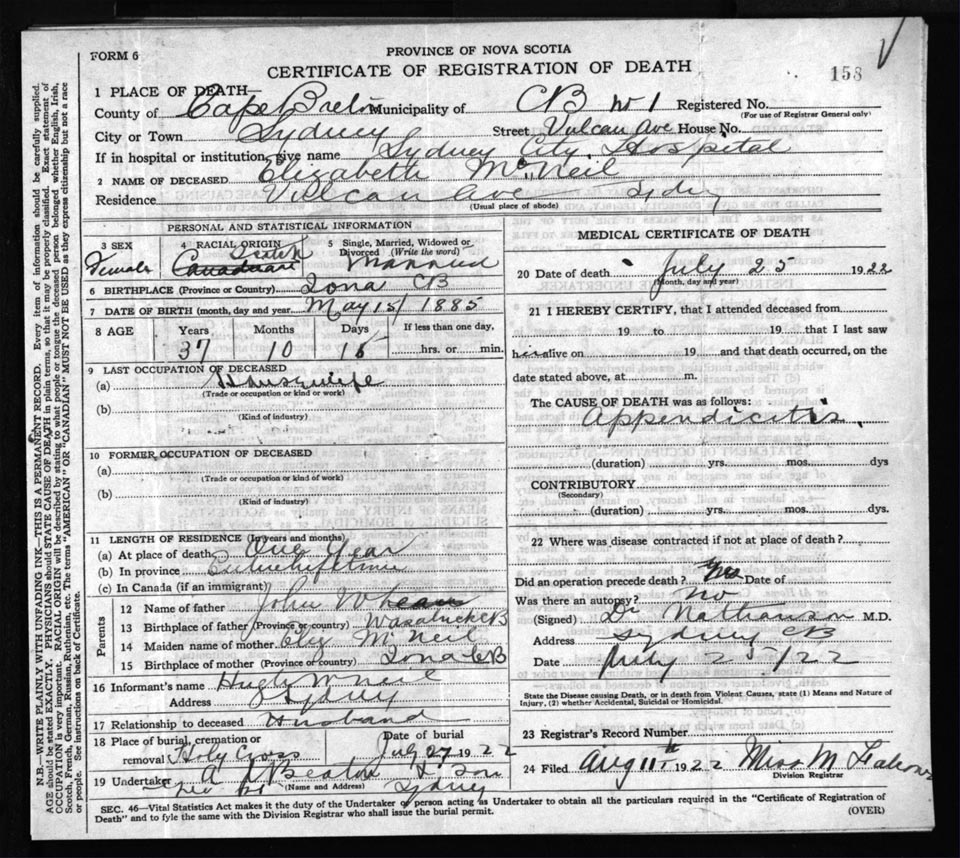 FORM 6
PROVINCE OF NOVA SCOTIA
CERTIFICATE OF REGISTRATION OF DEATH
158
1 PLACE OF DEATH—
County of Cape Breton Municipality of CB No 1 Registered No.
(For use of Registrar General only)
City or Town Sydney Street Vulcan Ave House No.
If in hospital or institution, give name Sydney City Hospital
2 NAME OF DECEASED Elizabeth McNeil
Residence Vulcan Ave Sydney
(Usual place of abode)
PERSONAL AND STATISTICAL INFORMATION
3 SEX Female
4 RACIAL ORIGIN Scotch Canadian
5 Single, Married, Widowed or Divorced (Write the word) Married
6 BIRTHPLACE (Province or Country) Iona CB
7 DATE OF BIRTH (month, day and year) May 15/ 1885
8 AGE Years Months Days If less than one day,
37 10 15 hrs. or min.
9 LAST OCCUPATION OF DECEASED
(a) Housewife
(Trade or occupation or kind or work)
(b)
(Kind of industry)
10 FORMER OCCUPATION OF DECEASED
(a)
(Trade or occupation or kind of work)
(b)
(Kind of industry)
11 LENGTH OF RESIDENCE (In years and months)
(a) At place of death One Year
(b) In province Entire lifetime
(c) In Canada (if an immigrant)
Parents
12 Name of father John
13 Birthplace of father (Province or country) CB
14 Maiden name of mother Eliz McNeil
15 Birthplace of mother (Province or country) Iona CB
16 Informant's name Hugh McNeil
Address Sydney
17 Relationship to deceased Husband
18 Place of burial, cremation or removal Holy Cross
Date of burial July 27 1922
19 Undertaker A Beaton & Son
(Name and Address) Sydney
MEDICAL CERTIFICATE OF DEATH
20 Date of death July 25 1922
(Month, day and year)
21 I HEREBY CERTIFY, that I attended deceased from
19 to 19 that I last saw
h alive on 19 and that death occurred, on the
date stated above, at m.
The CAUSE OF DEATH was as follows:
Appendicitis
(duration) yrs. mos. dys
CONTRIBUTORY
(Secondary)
(duration) yrs. mos. dys.
22 Where was disease contracted if not at place of death?
Did an operation precede death? Date of
Was there an autopsy? No
(Signed) Dr Nathanson M.D.
Address Sydney CB
Date July 25/22
State the Disease causing Death, or in death from Violent Causes, state (1) Means and Nature of
Injury, (2) whether Accidental, Suicidal or Homicidal.
23 Registrar's Record Number
24 Filed Aug 11th 1922 Miss M
Division Registrar
SEC. 46—Vital Statistics Act makes it the duty of the Undertaker or person acting as Undertaker to obtain all the particulars required in the "Certificate of Registration of
Death" and to fyle the same with the Division Registrar who shall issue the burial permit. (OVER)
N.B.—WRITE PLAINLY WITH UNFADING INK—THIS IS A PERMANENT RECORD. Every item of information should be carefully supplied.
AGE should be stated EXACTLY. PHYSICIANS should STATE CAUSE OF DEATH in plain terms, so that it may be properly classified. Exact statement of
OCCUPATION is very important. RACIAL ORIGIN will be described by stating to what people or tongue the deceased person belonged whether English, Irish,
Scotch, French, German, Russian, Ruthenian, etc. The terms "AMERICAN" OR "CANADIAN" MUST NOT BE USED as they express citizenship but not a race
or people. See instructions on back of Certificate.